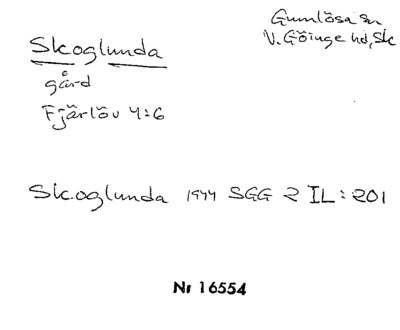 Skoglunda
gård
Fjärlöv 4:6
Gumlösa sn
V. Göinge hd, Sk
Skoglunda 1944 SGG 2 IL : 201
Nr 16554